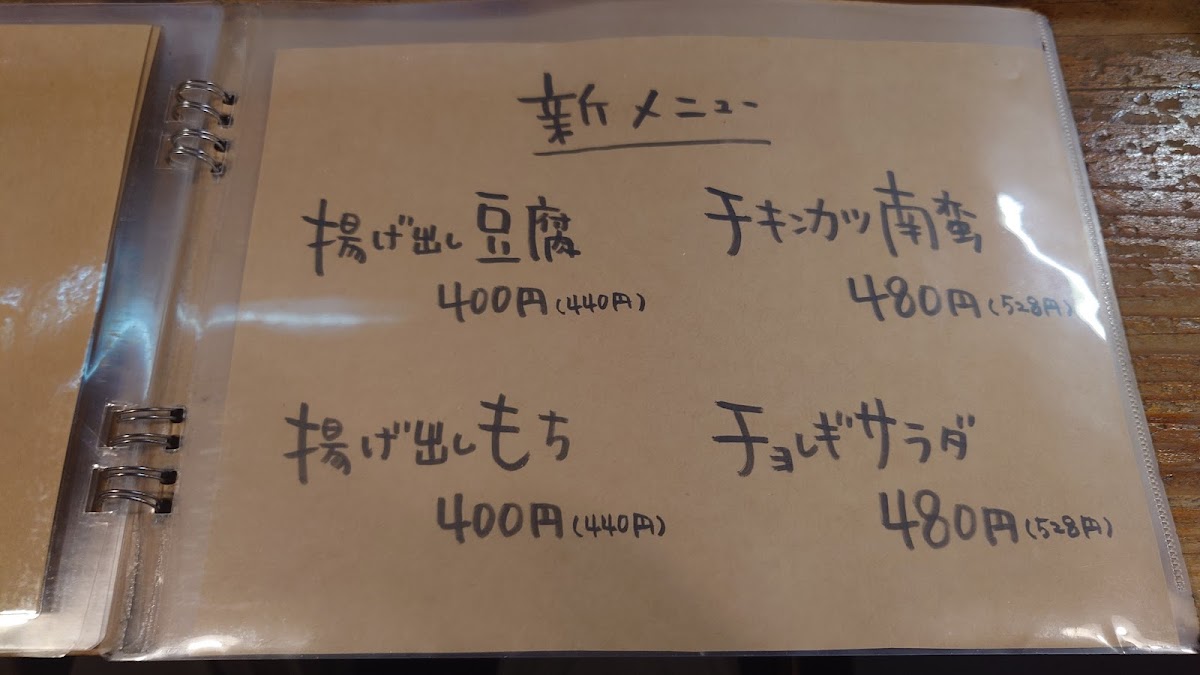 新メニュー
揚げ出し豆腐
400円(440円)
チキンカツ南蛮
480円(528円)
揚げ出しもち
400円(440円)
チョレギサラダ
480円(528円)